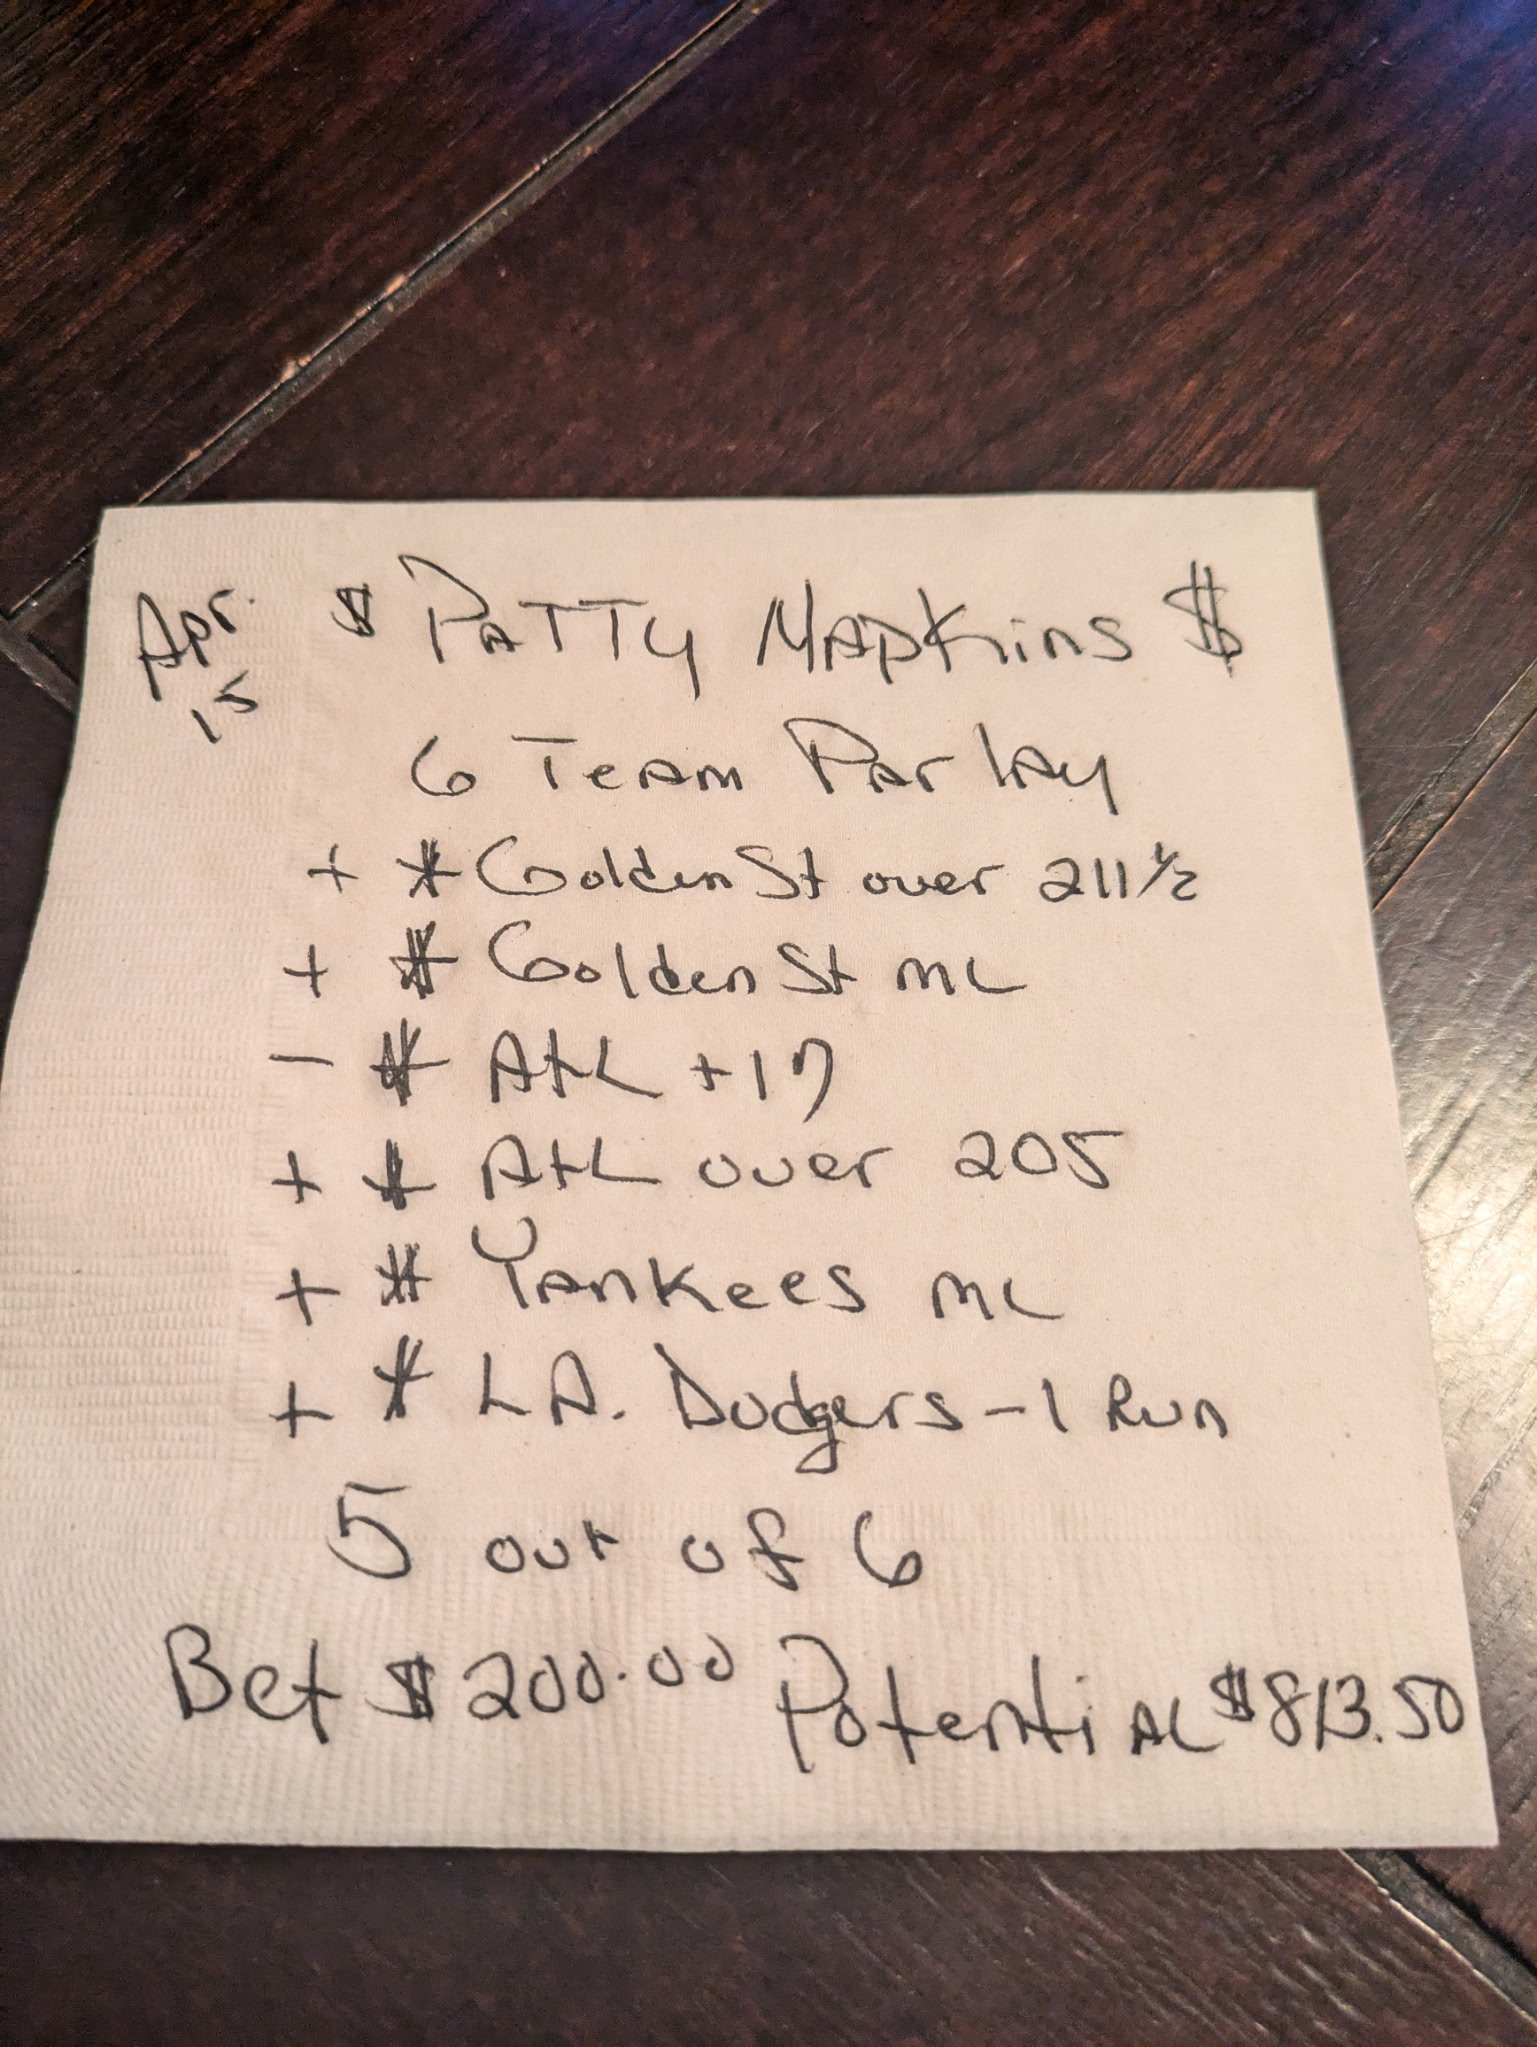 Apr. 15
$ Patty Napkins $
6 Team Parlay
+ * Golden St over 211 1/2
+ * Golden St ML
- * AtL +17
+ * AtL over 205
+ * Yankees ML
+ * L.A. Dodgers -1 Run
5 out of 6
Bet $200.00 Potential $813.50